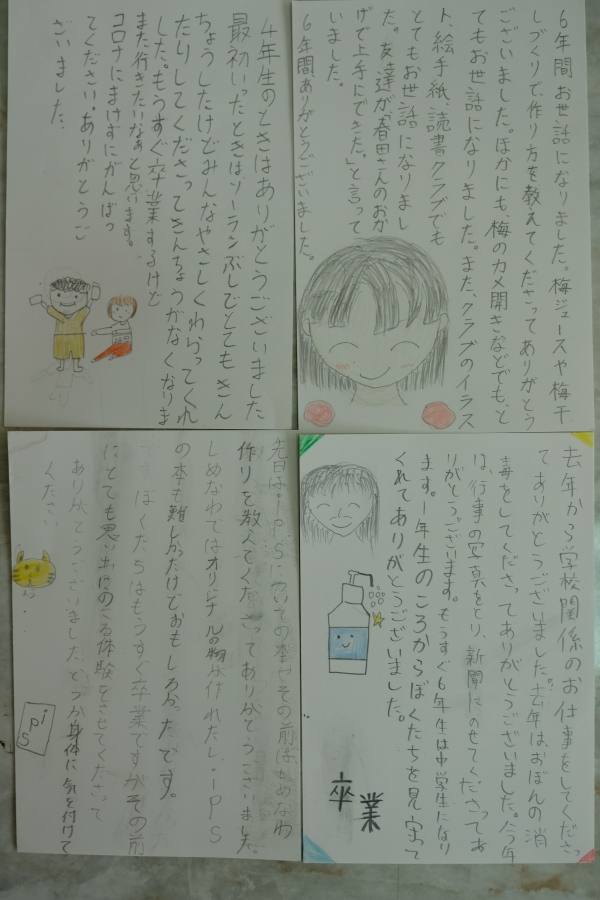 6年間お世話になりました。梅ジュースや梅干
しづくりで、作り方を教えてくださってありがとう
ございました。ほかにも、梅のカメ開きなどでも、と
てもお世話になりました。また、クラブのイラス
ト、絵手紙、読書クラブでも
とてもお世話になりまし
た。友達が、「春田さんのおか
げで上手にできた。」と言って
いました。
6年間ありがとうございました。
4年生のときはありがとうございました
最初いったときはソーランぶしでとてもきん
ちょうしたけどみんなやさしくかかわってくれ
たりしてくださってきんちょうがなくなりま
した。もうすぐ卒業するけど
また行きたいなぁと思います。
コロナにまけずにがんばっ
てください。ありがとうご
ざいました。
去年から学校関係のお仕事をしてくださっ
てありがとうございました。去年は、おぼんの消
毒をしてくださってありがとうございました。今年
は、行事の写真をとり、新聞にのせてくださってあ
りがとうございます。もうすぐ6年生は中学生になり
ます。1年生のころからぼくたちを見守って
くれてありがとうございました。
卒業
先日は、iPSについての本やその前はしめなわ
作りを教えてくださってありがとうございました。
しめなわではオリジナルの物が作れたし、iPS
の本も難しかったけどおもしろかったです。
ぼくたちはもうすぐ卒業ですがその前
にとても思い出にのこる体験をさせてくださって
ありがとうございました。どうか身体に気を付けて
ください
iPS